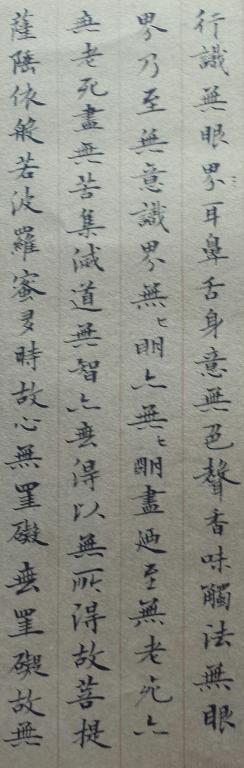 行識無眼界耳鼻舌身意無色聲香味觸法無眼
界乃至無意識界無〻明亦無〻明盡廼至無老死亦
無老死盡無苦集滅道無智亦無得以無所得故菩提
薩陲依般若波羅蜜多時故心無罣礙無罣礙故無